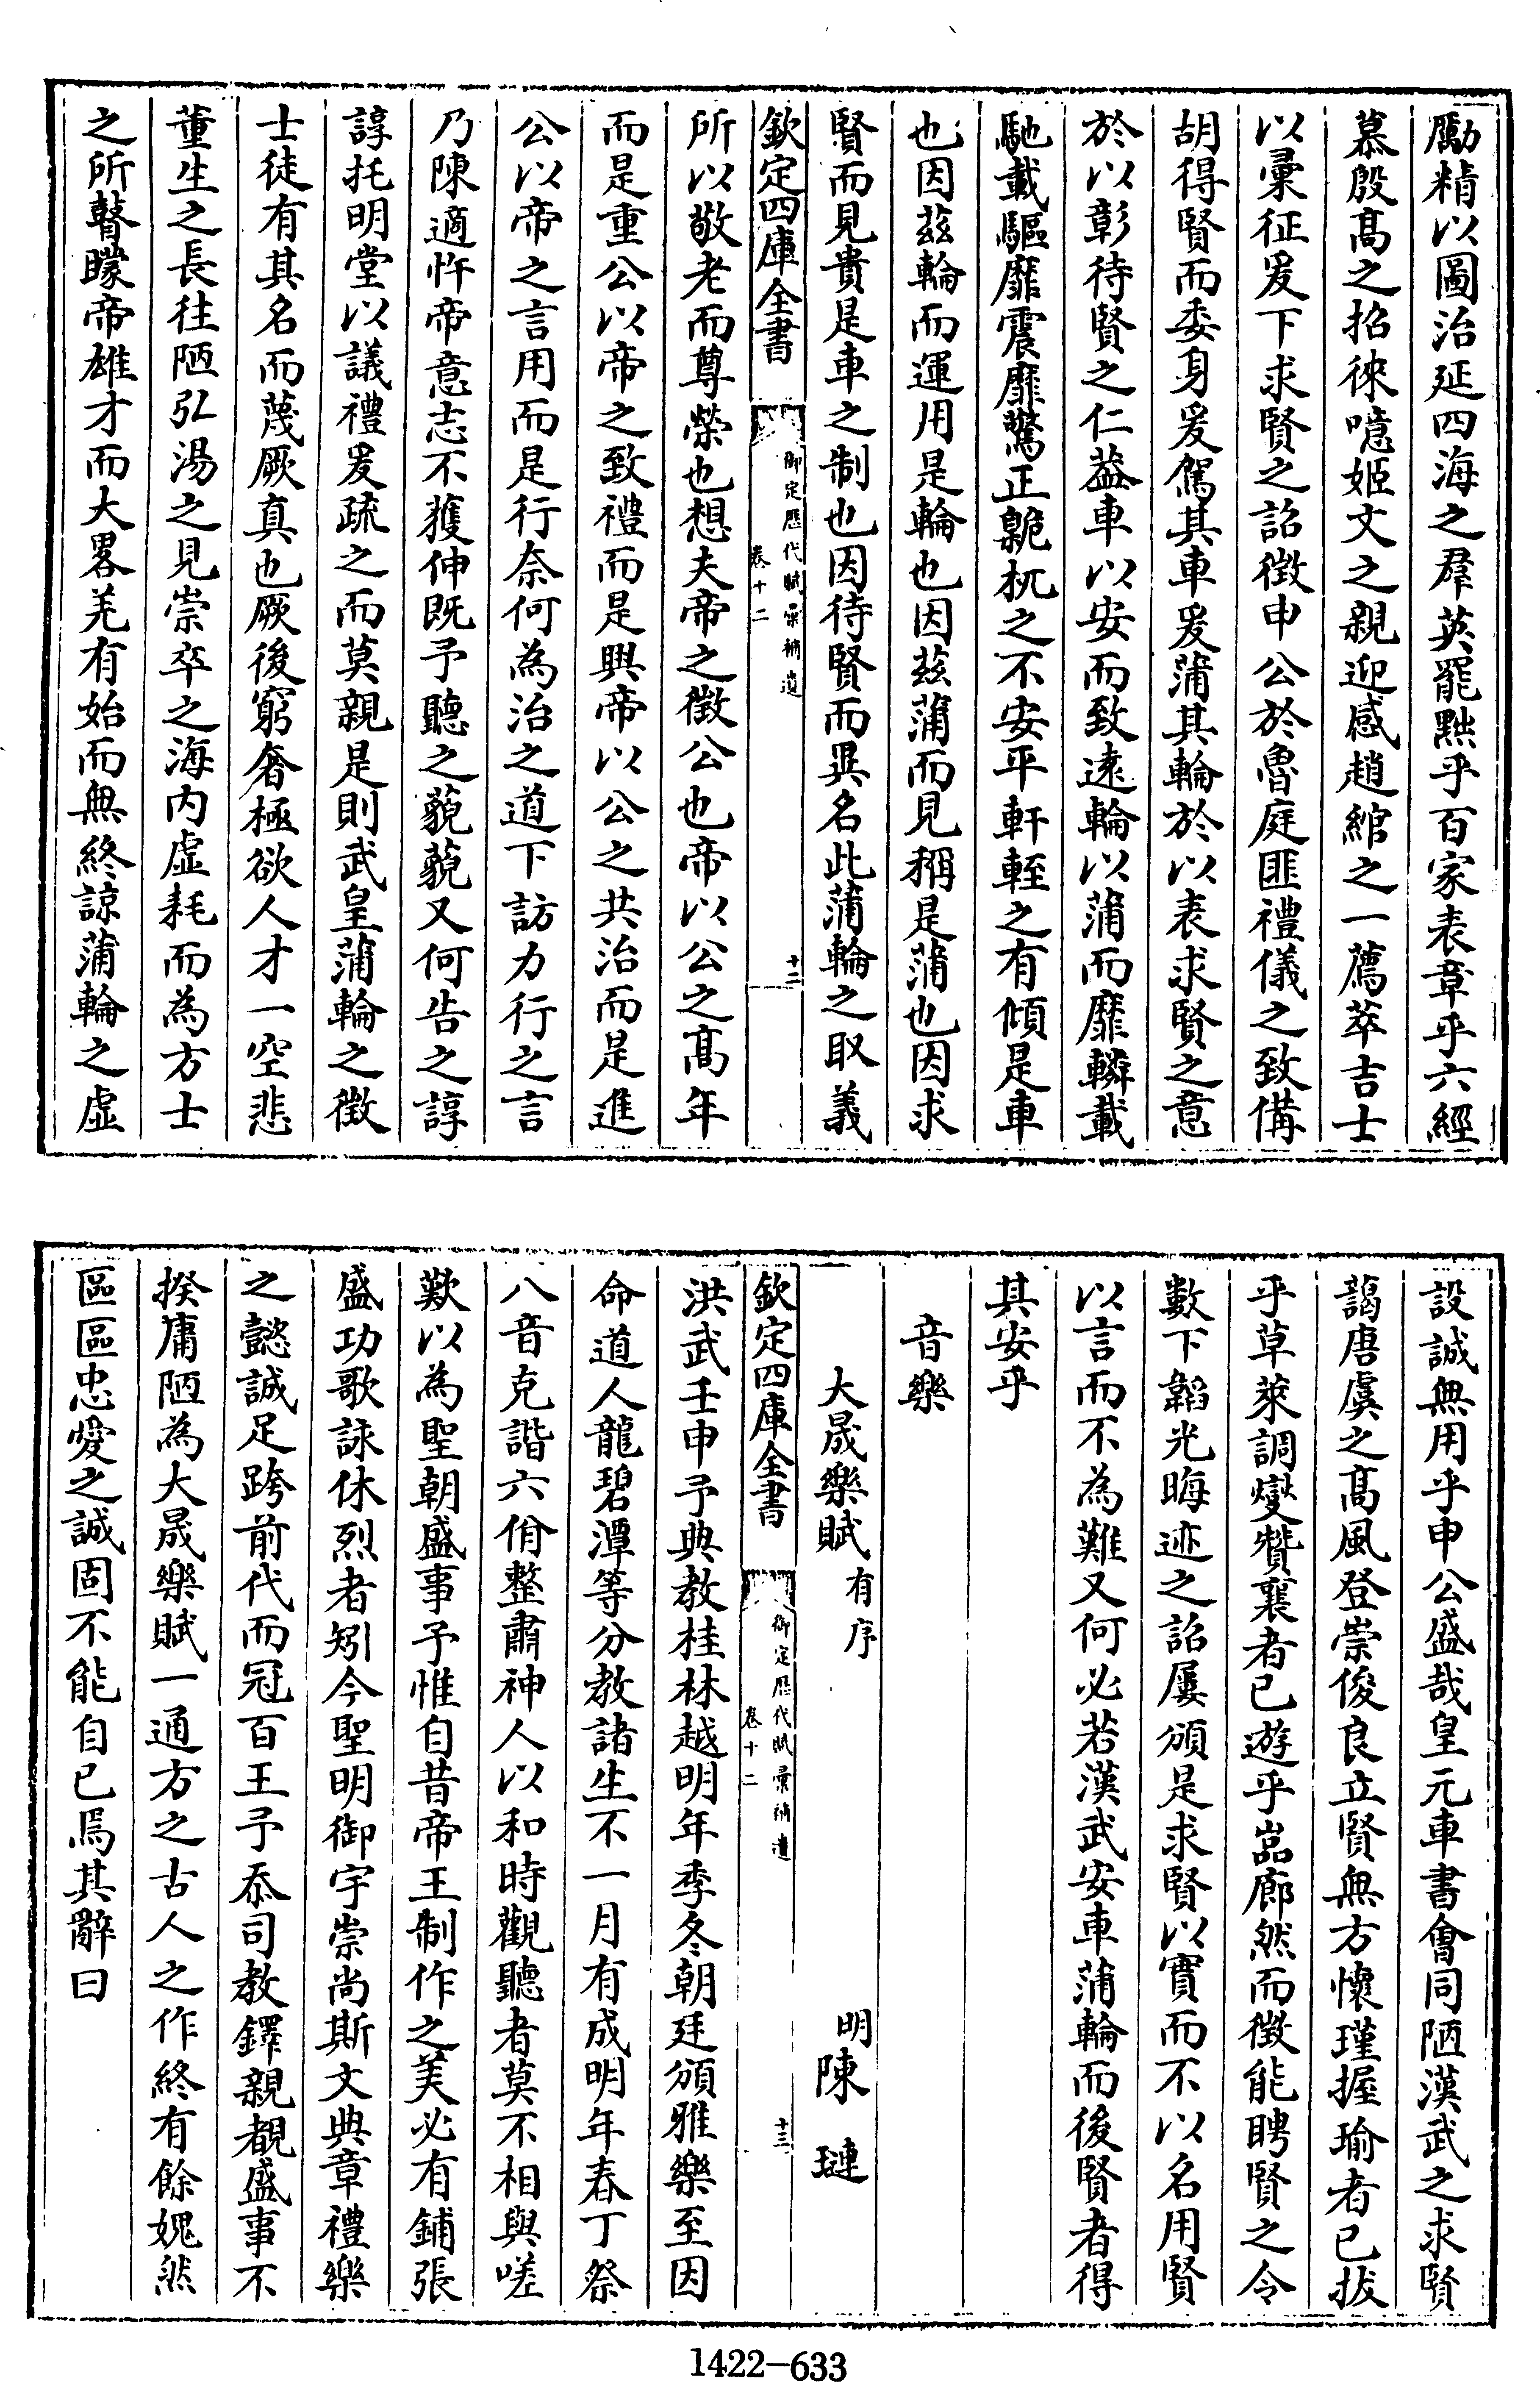 勵精以圖治延四海之羣英罷黜乎百家表章乎六經
慕殷髙之招徠噫姬文之親迎感趙綰之一薦萃吉士
以彚征爰下求賢之詔徴申公於魯庭匪禮儀之致備
胡得賢而委身爰駕其車爰蒲其輪於以表求賢之意
於以彰待賢之仁葢車以安而致逺輪以蒲而靡轔載
馳載驅靡震靡驚正臲杌之不安平軒輊之有傾是車
也因兹輪而運用是輪也因兹蒲而見稱是蒲也因求
賢而見貴是車之制也因待賢而異名此蒲輪之取義
欽定四庫全書
御定歴代賦彚補遺
卷十二
十二
所以敬老而尊榮也想夫帝之徴公也帝以公之髙年
而是重公以帝之致禮而是興帝以公之共治而是進
公以帝之言用而是行奈何為治之道下訪力行之言
乃陳適忤帝意志不獲伸既予聽之藐藐又何告之諄
諄托明堂以議禮爰疏之而莫親是則武皇蒲輪之徴
士徒有其名而蔑厥真也厥後窮奢極欲人才一空悲
董生之長往陋弘湯之見崇卒之海内虛耗而為方士
之所瞽矇帝雄才而大畧羌有始而無終諒蒲輪之虛
設誠無用乎申公盛哉皇元車書㑹同陋漢武之求賢
藹唐虞之髙風登崇俊良立賢無方懷瑾握瑜者已拔
乎草萊調燮贊襄者已遊乎巖廊然而徴能聘賢之令
數下韜光晦迹之詔屢頒是求賢以實而不以名用賢
以言而不為難又何必若漢武安車蒲輪而後賢者得
其安乎
音樂
大晟樂賦有序
明陳璉
欽定四庫全書
御定歴代賦彚補遺
卷十二
十三
洪武壬申予典教桂林越明年季冬朝廷頒雅樂至因
命道人龍碧潭等分教諸生不一月有成明年春丁祭
八音克諧六佾整肅神人以和時觀聽者莫不相與嗟
歎以為聖朝盛事予惟自昔帝王制作之美必有鋪張
盛功歌詠休烈者矧今聖明御宇崇尚斯文典章禮樂
之懿誠足跨前代而冠百王予忝司教鐸親覩盛事不
揆庸陋為大晟樂賦一通方之古人之作終有餘媿然
區區忠愛之誠固不能自已焉其辭曰
1422-633